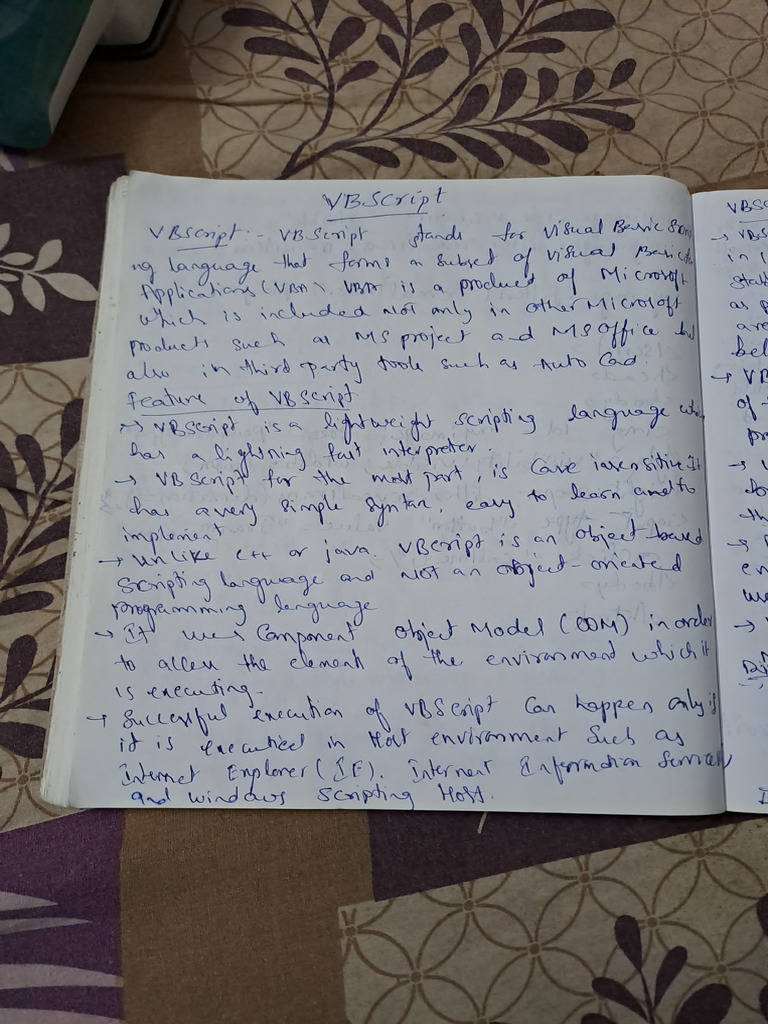 VBScript
VBScript:- VBScript stands for Visual Basic Script
ing language that forms a subset of Visual Basic for
Applications (VBA). VBA is a product of Microsoft
which is included not only in other Microsoft
products such as MS project and MS Office but
also in third party tools such as Auto Cad.
feature of VBScript
→ VBScript is a lightweight scripting language which
has a lightning fast interpreter
→ VBScript for the most part, is case insensitive It
has a very simple syntax, easy to learn and to
implement
→ Unlike C++ or java. VBScript is an object-based
Scripting language and Not an object-oriented
programming language
→ It uses Component Object Model (COM) in order
to access the element of the environment which it
is executing.
→ Successful execution of VBScript can happen only is
it is executied in Host environment such as
Internet Explorer (IE). Internent Information Services
and windows Scripting Host.
VBSC
→ VBS
in i
stat
as p
are
bel
→ VB
of
pr